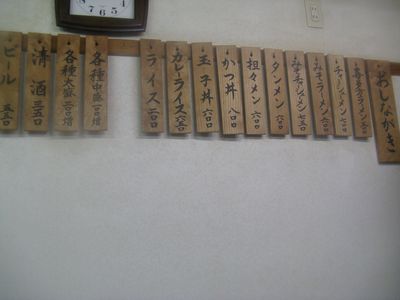 おしながき
喜多方ラーメン
チャーシューメン
みそラーメン 六〇〇
みそチャーシューメン 七五〇
タンメン 六〇〇
担々メン 六〇〇
かつ丼 八〇〇
玉子丼 六〇〇
カレーライス 六五〇
ライス 二〇〇
各種中盛 一〇〇増
各種大盛 二〇〇増
清酒 三五〇
ビール 五五〇
8 7 6 5 4